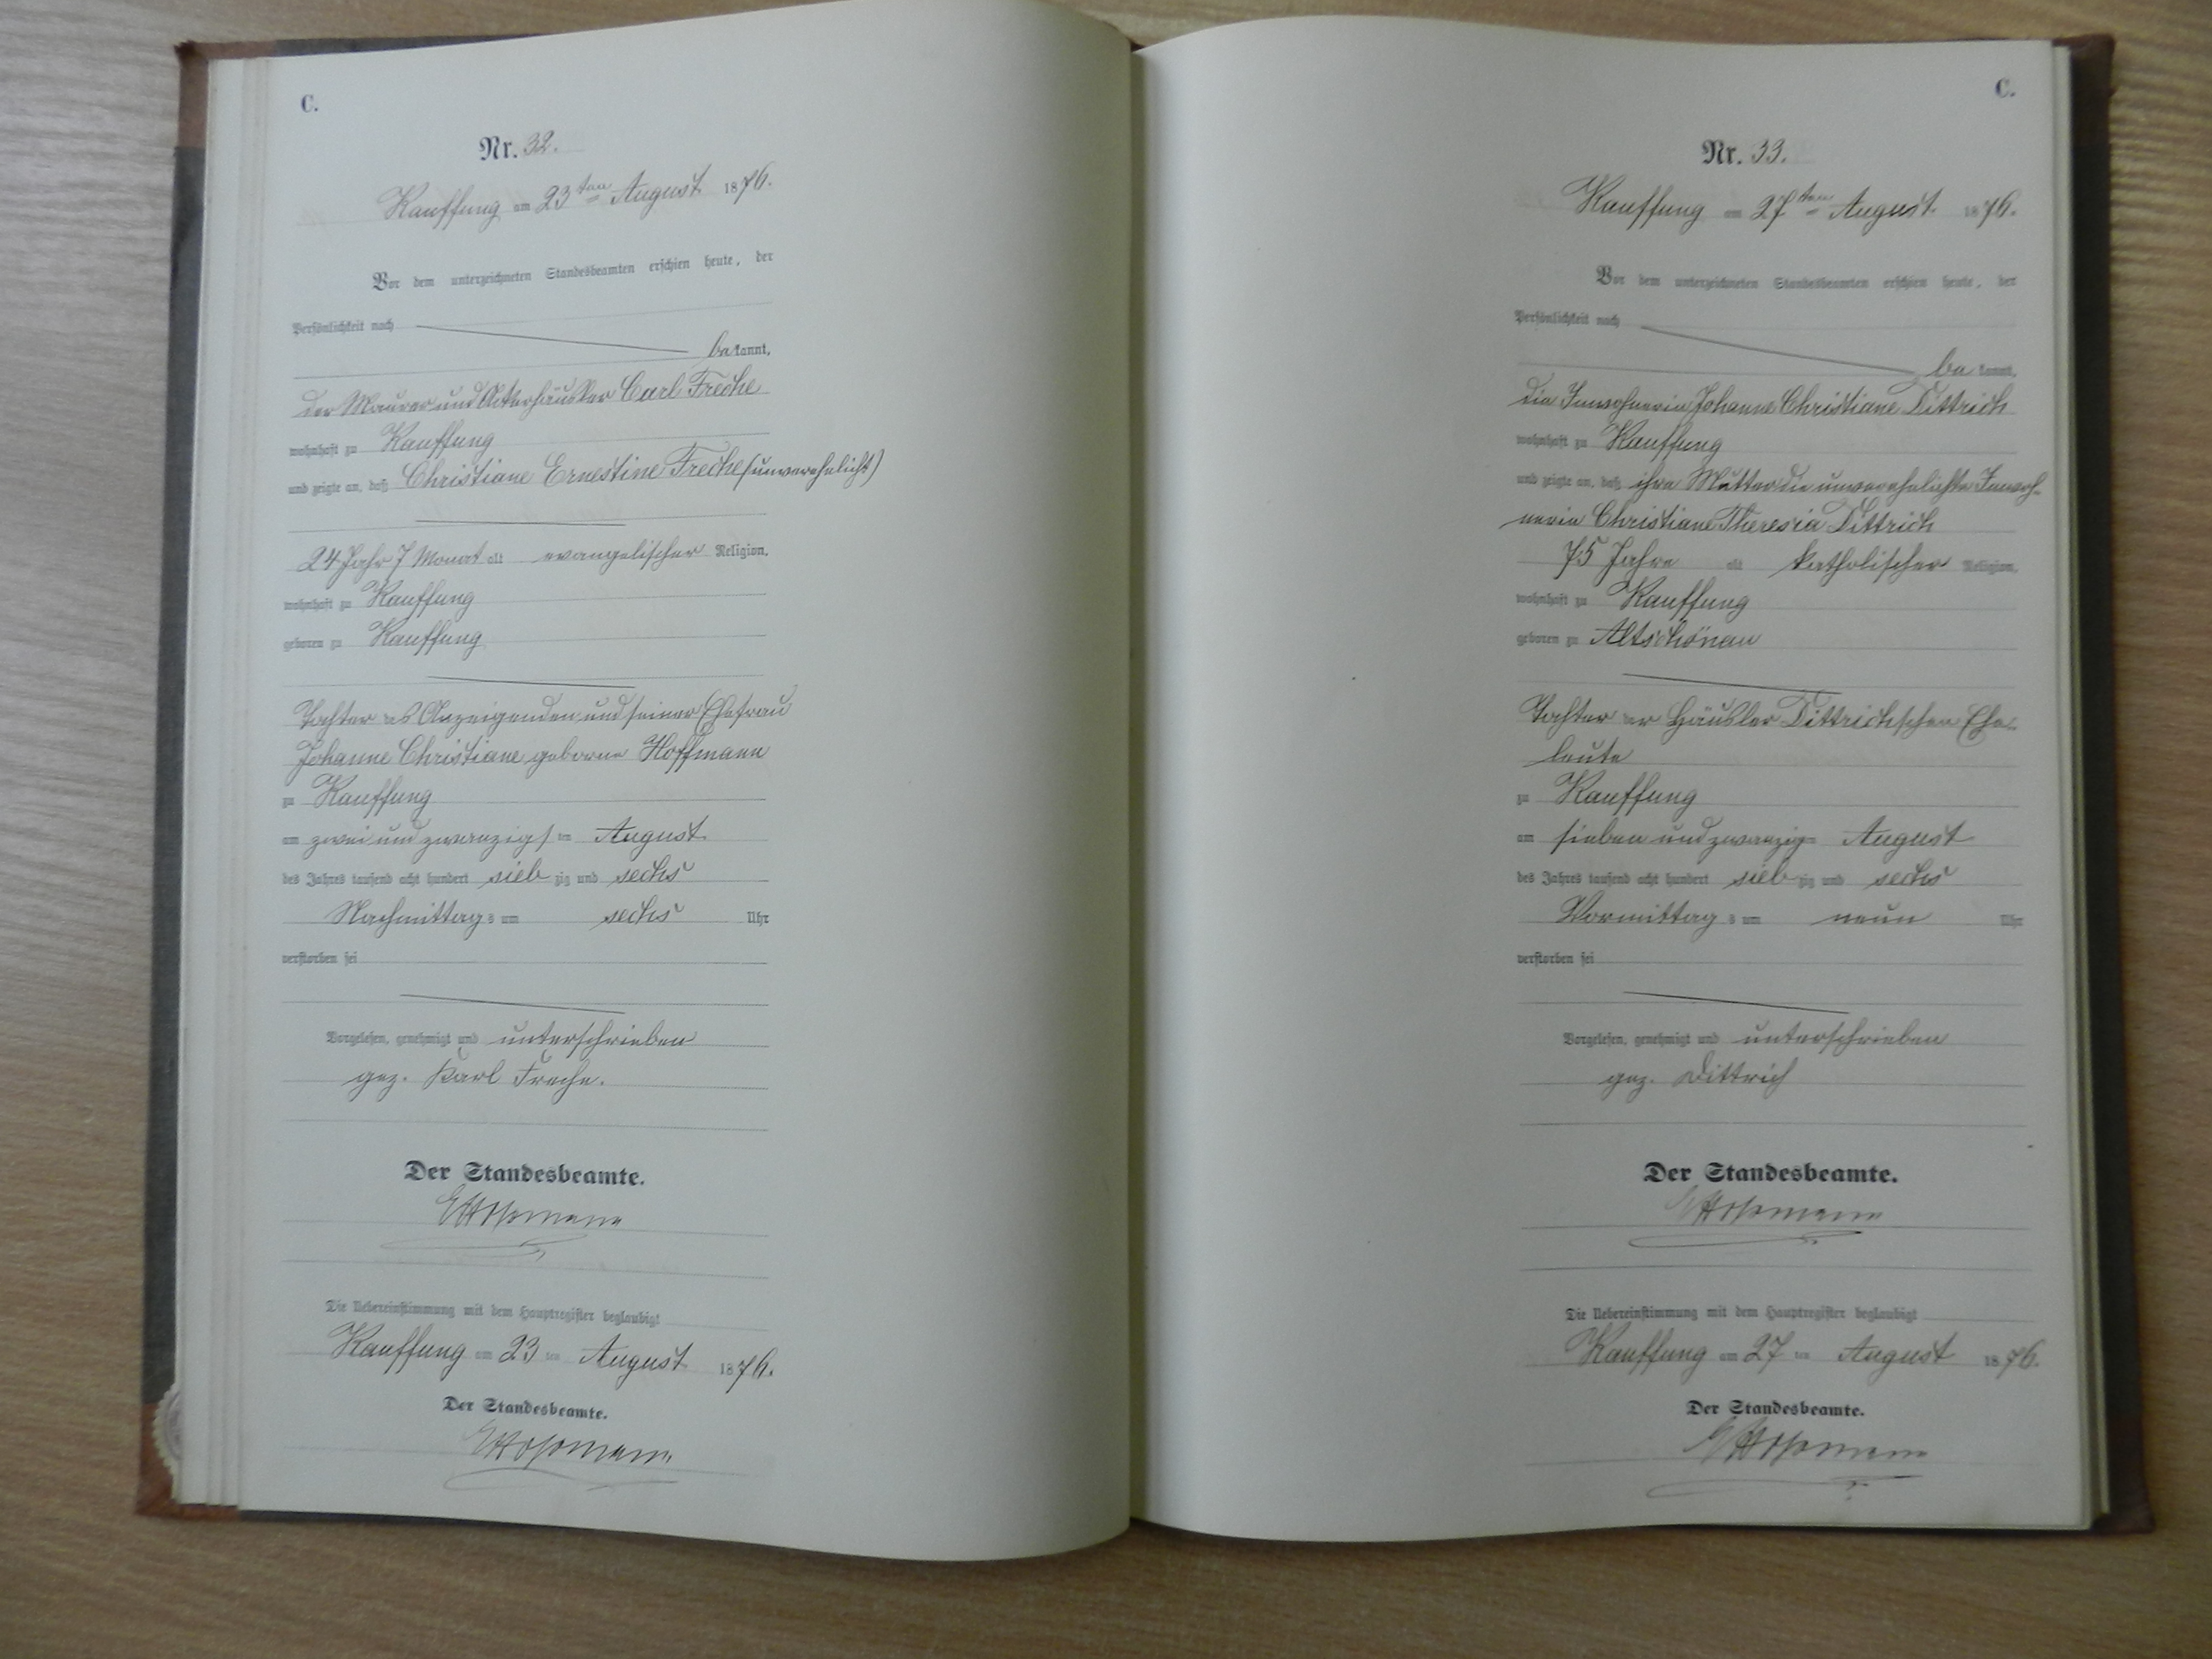 C.
Nr. 32.
Kauffung am 23ten August 1876.
Vor dem unterzeichneten Standesbeamten erschien heute, der
Persönlichkeit nach
bekannt,
der Maurer und Ackerhäusler Carl Freche
wohnhaft zu Kauffung
und zeigte an, daß Christiane Ernestine Freche (unverehelicht)
24 Jahr 7 Monat alt evangelischer Religion,
wohnhaft zu Kauffung
geboren zu Kauffung
Tochter des Anzeigenden und seiner Ehefrau
Johanne Christiane geborne Hoffmann
zu Kauffung
am zwei und zwanzigsten August
des Jahres tausend acht hundert siebzig und sechs
Nachmittags um sechs Uhr
verstorben sei
Vorgelesen, genehmigt und unterschrieben
gez. Karl Freche.
Der Standesbeamte.
Die Uebereinstimmung mit dem Hauptregister beglaubigt
Kauffung am 23ten August 1876.
Der Standesbeamte.
C.
Nr. 33.
Kauffung am 27ten August 1876.
Vor dem unterzeichneten Standesbeamten erschien heute, der
Persönlichkeit nach
bekannt,
die Inwohnerin Johanne Christiane Dittrich
wohnhaft zu Kauffung
und zeigte an, daß ihre Mutter die unverehelichte Inwoh-
nerin Christiane Theresia Dittrich
75 Jahre alt katholischer Religion,
wohnhaft zu Kauffung
geboren zu Altschönau
Tochter der Häusler Dittrichschen Ehe-
leute
zu Kauffung
am sieben und zwanzig August
des Jahres tausend acht hundert siebzig und sechs
Vormittags um neun Uhr
verstorben sei
Vorgelesen, genehmigt und unterschrieben
gez. Dittrich
Der Standesbeamte.
Die Uebereinstimmung mit dem Hauptregister beglaubigt
Kauffung am 27ten August 1876.
Der Standesbeamte.